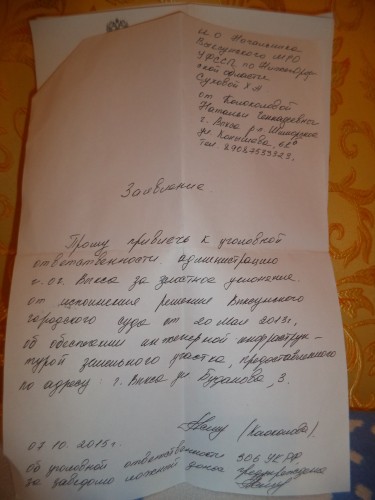 И.О Начальника
Выксунского МРО
УФССП по Нижегород
ской области
Суховой Х.А
от Колоколовой
Натальи Геннадьевны
г. Выкса р.п. Шиморское
ул Конышова,
Тел. 89087533323.
Заявление
Прошу привлечь к уголовной
ответственности администрацию
г.о г. Выкса за злостное уклонение
от исполнения решения Выксунского
городского суда от 20 мая 2013г,
об обеспечении инженерной инфраструк-
турой земельного участка, предоставленного
по адресу: г. Выкса ул Буданова, 3.
(Колоколова).
07 10. 2015г.
об уголовной ответственности 306 УК РФ
за заведомо ложный донос предупреждена